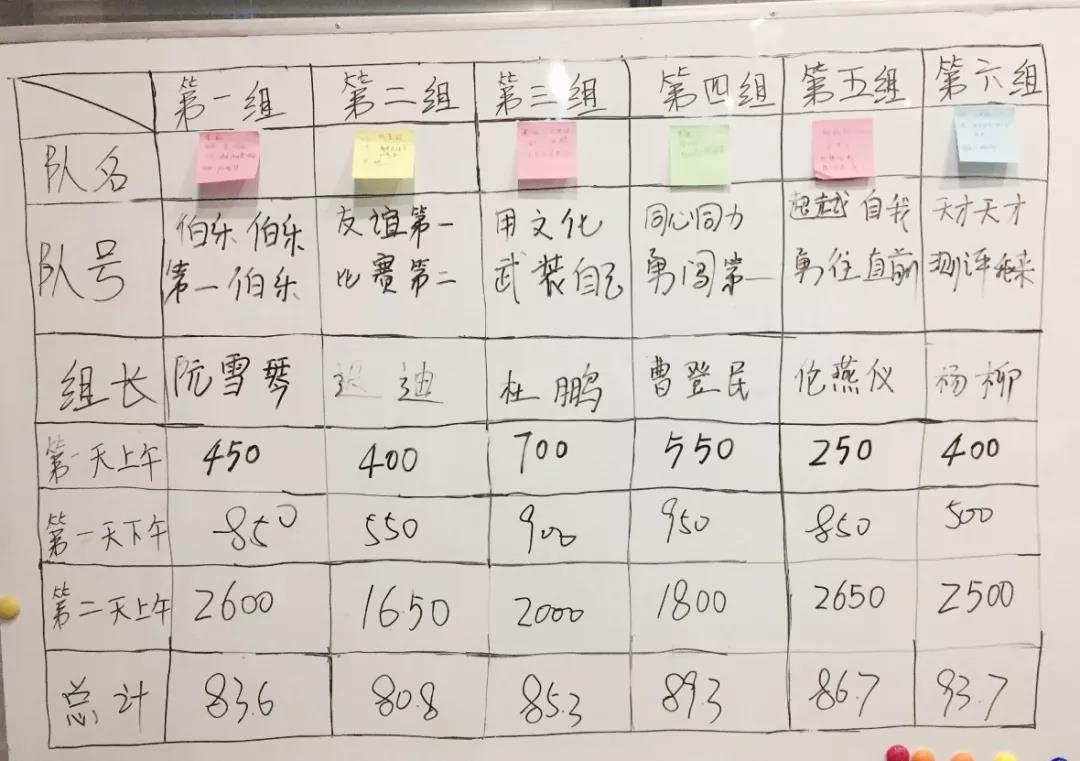 第一组 第二组 第三组 第四组 第五组 第六组
队名
队号 伯乐伯乐 友谊第一 用文化 同心同力 超越自我 天才天才
第一伯乐 比赛第二 武装自己 勇闯第一 勇往直前 测评
组长 阮雪琴 迪 杜鹏 曹登民 伦燕仪 杨柳
第一天上午 450 400 700 550 250 400
第一天下午 850 550 900 950 850 500
第二天上午 2600 1650 2000 1800 2650 2500
总计 83.6 80.8 85.3 89.3 86.7 93.7